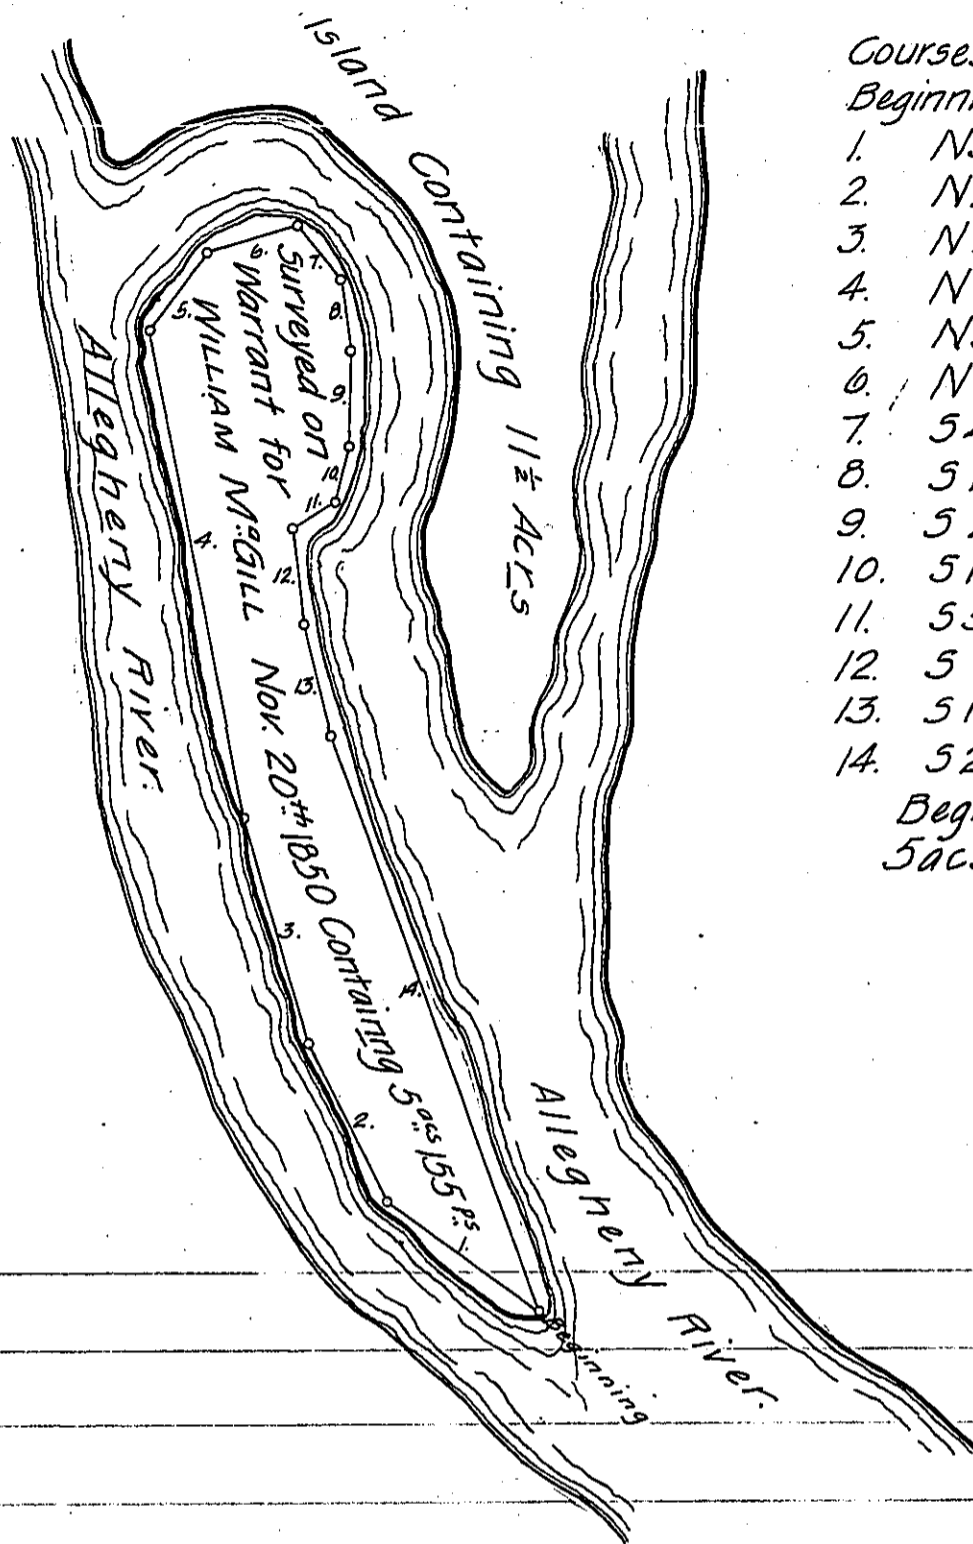 Island Containing 11½ Acrs
Surveyed on
Warrant for
WILLIAM McGILL Nov. 20th 1850 Containing 5acs 155ps
Allegheny River.
Allegheny River.
Beginning
1.
2.
3.
4.
5.
6.
7.
8.
9.
10.
11.
12.
13.
14.
Courses
Beginn
1. N
2. N
3. N
4. N
5. N
6. N
7. S
8. S
9. S
10. S1
11. S
12. S
13. S1
14. S2
Beg
5acs